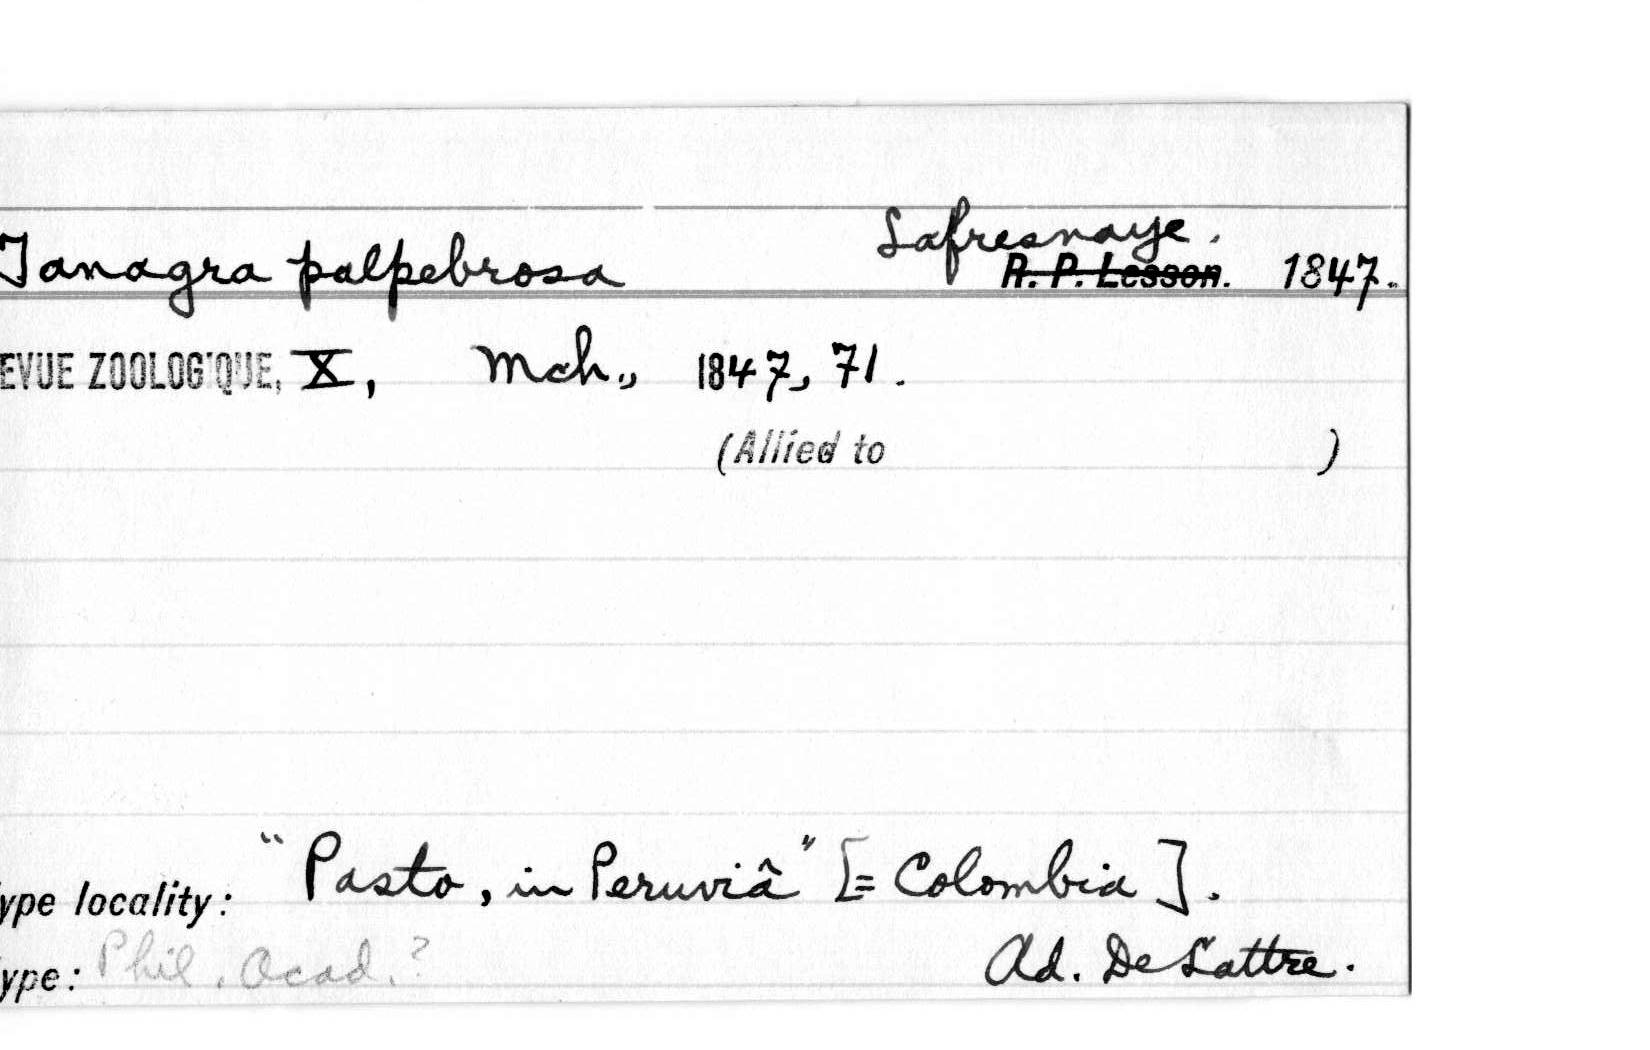 Tanagra palpebrosa Lafresnaye.
R. P. Lesson. 1847.
EVUE ZOOLOGIQUE, X, Mch., 1847, 71.
(Allied to )
ype locality: "Pasto, in Peruviâ" [= Colombia].
ype: Phil. Acad.? Ad. De Lattre.